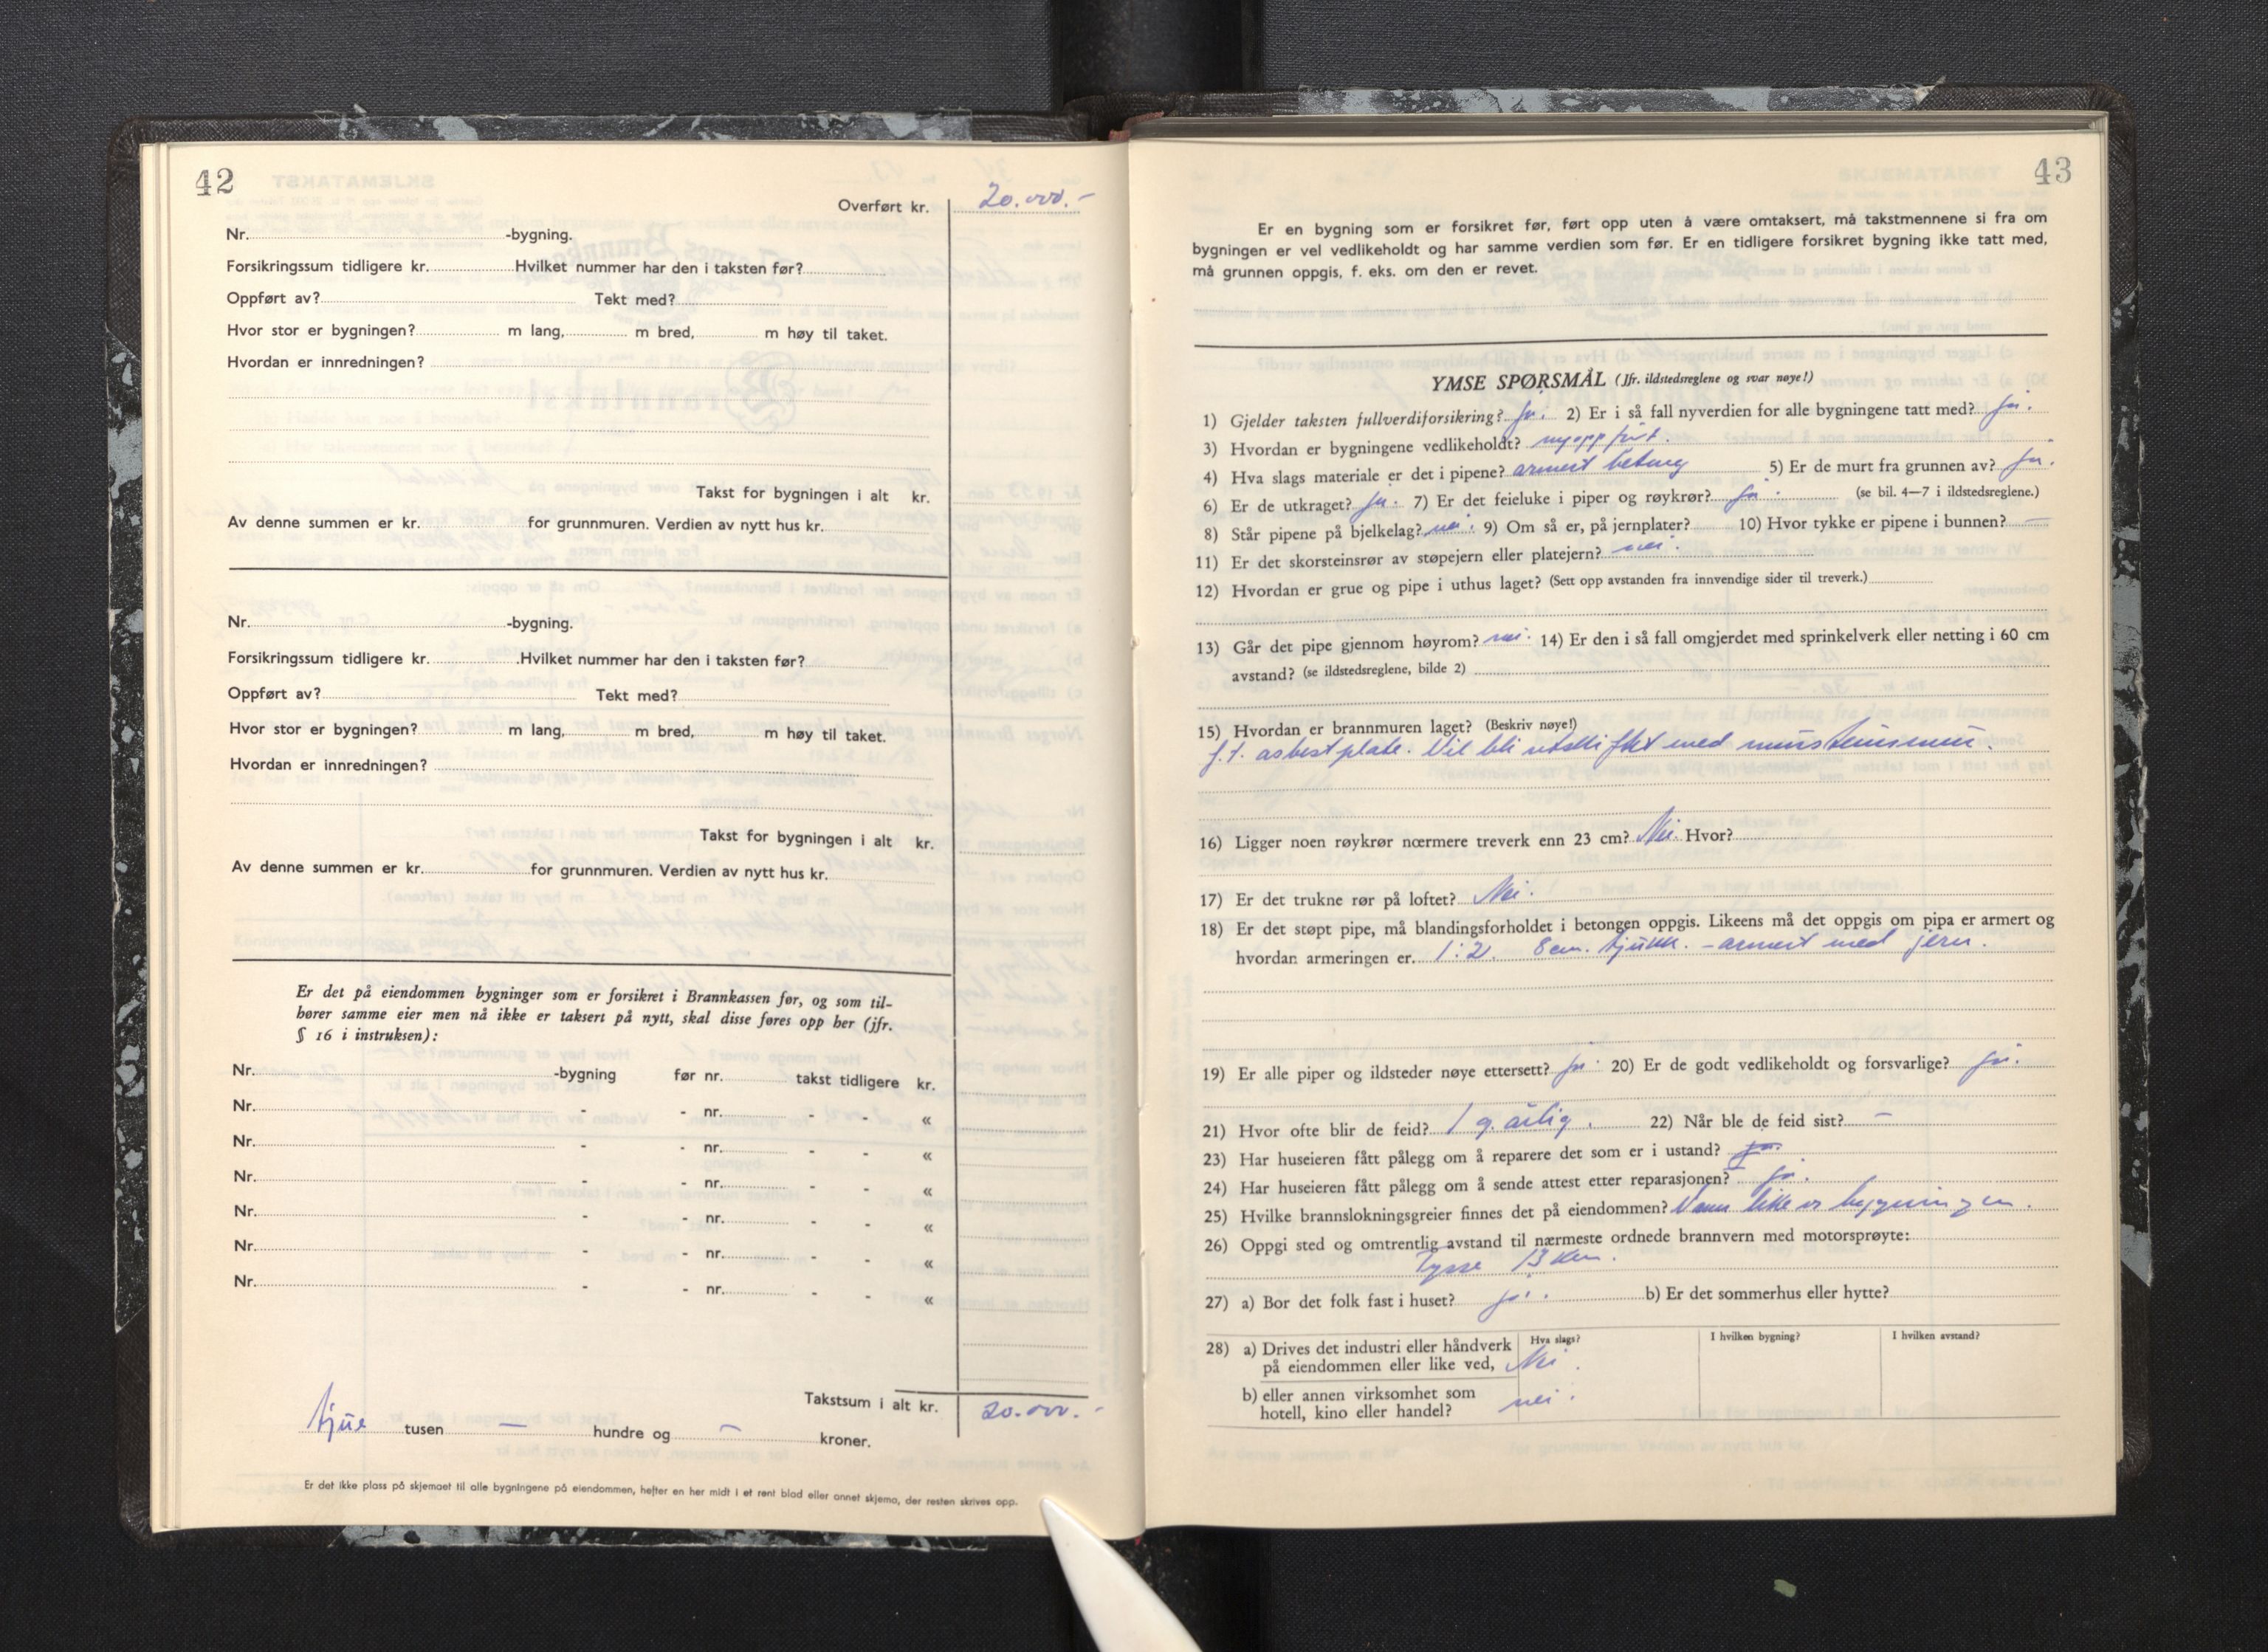 42
Overført kr. 20.000.-
Nr. -bygning.
Forsikringssum tidligere kr. Hvilket nummer har den i taksten før?
Oppført av? Tekt med?
Hvor stor er bygningen? m lang, m bred, m høy til taket.
Hvordan er innredningen?
Takst for bygningen i alt kr.
Av denne summen er kr. for grunnmuren. Verdien av nytt hus kr.
Nr. -bygning.
Forsikringssum tidligere kr. Hvilket nummer har den i taksten før?
Oppført av? Tekt med?
Hvor stor er bygningen? m lang, m bred, m høy til taket.
Hvordan er innredningen?
Takst for bygningen i alt kr.
Av denne summen er kr. for grunnmuren. Verdien av nytt hus kr.
Er det på eiendommen bygninger som er forsikret i Brannkassen før, og som til-
hører samme eier men nå ikke er taksert på nytt, skal disse føres opp her (jfr.
§ 16 i instruksen):
Nr. -bygning før nr. takst tidligere kr.
Nr. - - nr. - - «
Nr. - - nr. - - «
Nr. - - nr. - - «
Nr. - - nr. - - «
Nr. - - nr. - - «
Nr. - - nr. - - «
Takstsum i alt kr. 20.000.-
tjue tusen — hundre og — kroner.
Er det ikke plass på skjemaet til alle bygningene på eiendommen, hefter en her midt i et rent blad eller annet skjema, der resten skrives opp.
43
Er en bygning som er forsikret før, ført opp uten å være omtaksert, må takstmennene si fra om
bygningen er vel vedlikeholdt og har samme verdien som før. Er en tidligere forsikret bygning ikke tatt med,
må grunnen oppgis, f. eks. om den er revet.
YMSE SPØRSMÅL (Jfr. ildstedsreglene og svar nøye!)
1) Gjelder taksten fullverdiforsikring? ja. 2) Er i så fall nyverdien for alle bygningene tatt med? ja.
3) Hvordan er bygningene vedlikeholdt? nyoppført.
4) Hva slags materiale er det i pipene? armert betong 5) Er de murt fra grunnen av? ja.
6) Er de utkraget? ja. 7) Er det feieluke i piper og røykrør? ja. (se bil. 4—7 i ildstedsreglene.)
8) Står pipene på bjelkelag? nei. 9) Om så er, på jernplater? 10) Hvor tykke er pipene i bunnen? —
11) Er det skorsteinsrør av støpejern eller platejern? nei.
12) Hvordan er grue og pipe i uthus laget? (Sett opp avstanden fra innvendige sider til treverk.)
13) Går det pipe gjennom høyrom? nei. 14) Er den i så fall omgjerdet med sprinkelverk eller netting i 60 cm
avstand? (se ildstedsreglene, bilde 2)
15) Hvordan er brannmuren laget? (Beskriv nøye!)
f.t. asbestplate. Vil bli utskiftet med mursteinsmur.
16) Ligger noen røykrør nærmere treverk enn 23 cm? Nei. Hvor?
17) Er det trukne rør på loftet? Nei.
18) Er det støpt pipe, må blandingsforholdet i betongen oppgis. Likeens må det oppgis om pipa er armert og
hvordan armeringen er. 1:2. 8 cm. tjukk. - armert med jern.
19) Er alle piper og ildsteder nøye ettersett? ja. 20) Er de godt vedlikeholdt og forsvarlige? ja.
21) Hvor ofte blir de feid? 1 g. årlig. 22) Når ble de feid sist? —
23) Har huseieren fått pålegg om å reparere det som er i ustand? ja.
24) Har huseieren fått pålegg om å sende attest etter reparasjonen? ja.
25) Hvilke brannslokningsgreier finnes det på eiendommen? Vann like v bygningen.
26) Oppgi sted og omtrentlig avstand til nærmeste ordnede brannvern med motorsprøyte:
Tysse 13 km.
27) a) Bor det folk fast i huset? ja. b) Er det sommerhus eller hytte?
Hva slags? I hvilken bygning? I hvilken avstand?
28) a) Drives det industri eller håndverk
på eiendommen eller like ved, Nei.
b) eller annen virksomhet som
hotell, kino eller handel? nei.